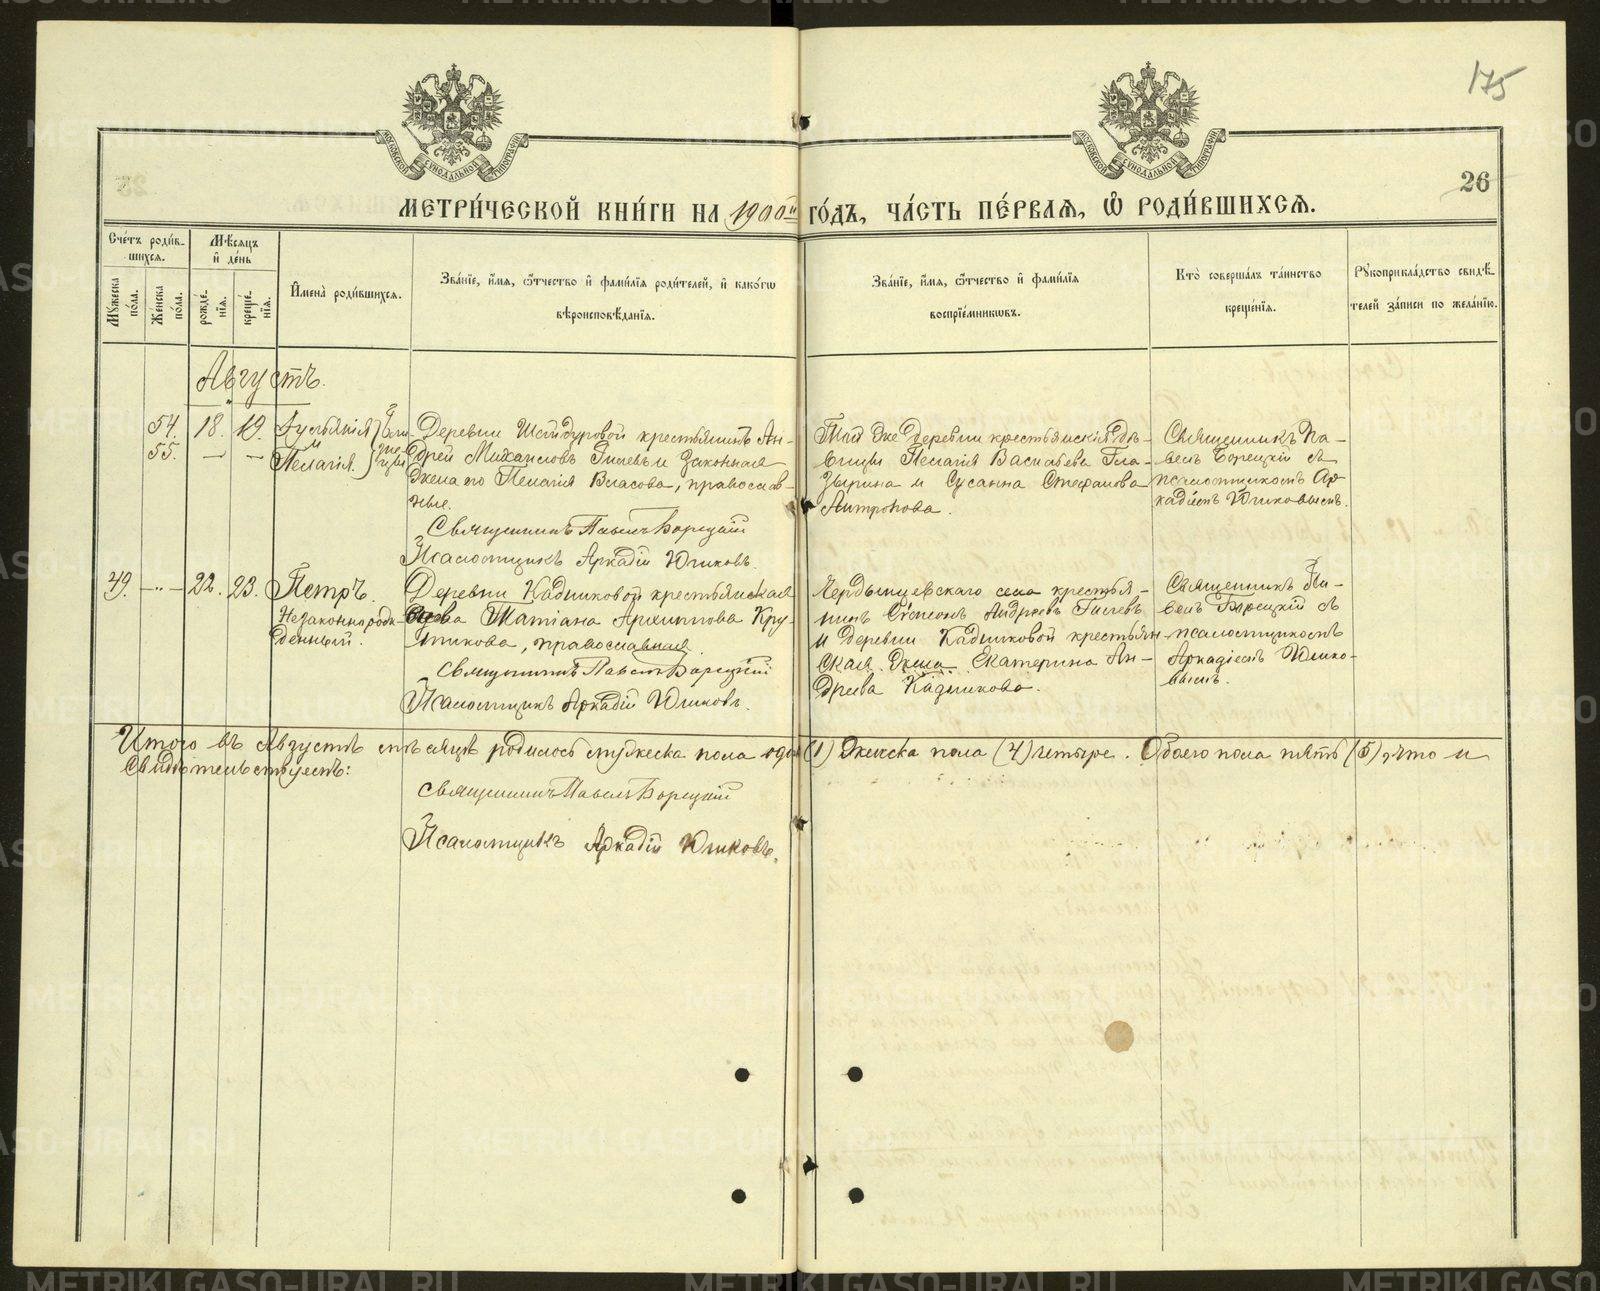 175
26
МЕТРИ́ЧЕСКОЙ КНИ́ГИ НА 1900й ГО́ДЪ, ЧА́СТЬ ПЕ́РВАЯ, Ѡ РОДИ́ВШИХСЯ.
Сче́тъ роди́вшихся.
Му́жеска по́ла.
Же́нска по́ла.
Мѣ́сяцъ и де́нь
рожде́нїя.
креще́нїя.
Имена̀ роди́вшихся.
Зва́нїе, и́мя, ѻ́тчество и фами́лїя роди́телей, и како́гѡ
вѣроисповѣ́данїя.
Зва́нїе, и́мя, ѻ́тчество и фами́лїя
воспрїе́мникѡвъ.
Кто̀ соверша́лъ та́инство
креще́нїя.
Рꙋкоприкла́дство свидѣ́-
телей за́писи по жела́нїю.
Августъ.
54. 18. 19.
55. — —
и
Пелагія.
Деревни Шайдуровой крестьянинъ Ан-
дрей Михаиловъ Гилевъ и законная
жена его Пелагія Власова, православ-
ные.
Священникъ Павелъ Борецкій
Псаломщикъ Аркадій Южковъ.
Той же деревни крестьянскія дѣ-
вицы Пелагія Васильева Гла-
зырина и Сусанна Стефанова
Антропова.
Священникъ Па-
велъ Борецкій съ
псаломщикомъ Ар-
кадіемъ Южковымъ.
49. — „ — 22. 23. Петръ.
Незаконнорож-
денный.
Деревни Кадниковой крестьянская
Татіана Архиппова Кру-
тикова, православная.
Священникъ Павелъ Борецкій
Псаломщикъ Аркадій Южковъ.
села крестья-
нинъ Стефанъ Андреевъ Гилевъ
и деревни Кадниковой крестьян-
ская жена Екатерина Ан-
дреева Кадникова.
Священникъ Па-
велъ Борецкій съ
псаломщикомъ
Аркадіемъ Южко-
вымъ.
Итого въ Августѣ мѣсяцѣ родилось мужеска пола одинъ (1) женска пола (4) четыре. Обоего пола пять (5), что и
Свидѣтельствуемъ:
Священникъ Павелъ Борецкій
Псаломщикъ Аркадій Южковъ.
METRIKI.GASO-URAL.RU